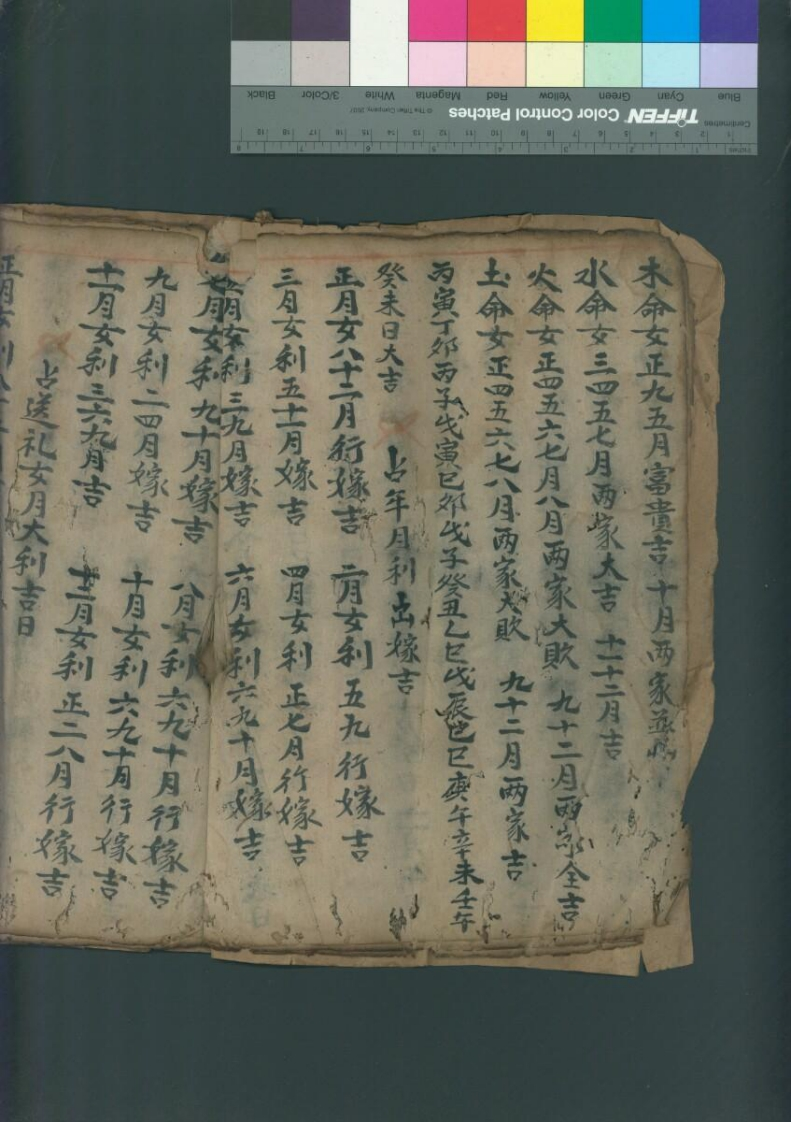 木命女正九五月富貴吉 十月两家
水命女三四五七月两家大吉 十一十二月吉
火命女正四五六七月八月两家大败 九十二月两家全吉
土命女正四五六七八月两家大败 九十二月两家吉
丙寅丁卯丙子戊寅巳卯戊子癸丑乙巳戊辰巳巳庚午辛未壬午
癸未日大吉 占年月利出嫁吉
正月女八十二月行嫁吉 二月女利五九行嫁吉
三月女利五十一月嫁吉 四月女利正七月行嫁吉
五月女利三九月嫁吉 六月女利六九十月嫁吉
七月女利九十月嫁吉 八月女利六九十月行嫁吉
九月女利二四月嫁吉 十月女利六九十月行嫁吉
十一月女利三六九月吉 十二月女利正二八月行嫁吉
占送礼女月大利吉日
正月女利八十二
TIFFEN Color Control Patches
© The Tiffen Company, 2007
Centimetres
Inches
Blue Cyan Green Yellow Red Magenta White 3/Color Black
1 2 3 4 5 6 7 8 9 10 11 12 13 14 15 16 17 18 19
1 2 3 4 5 6 7 8